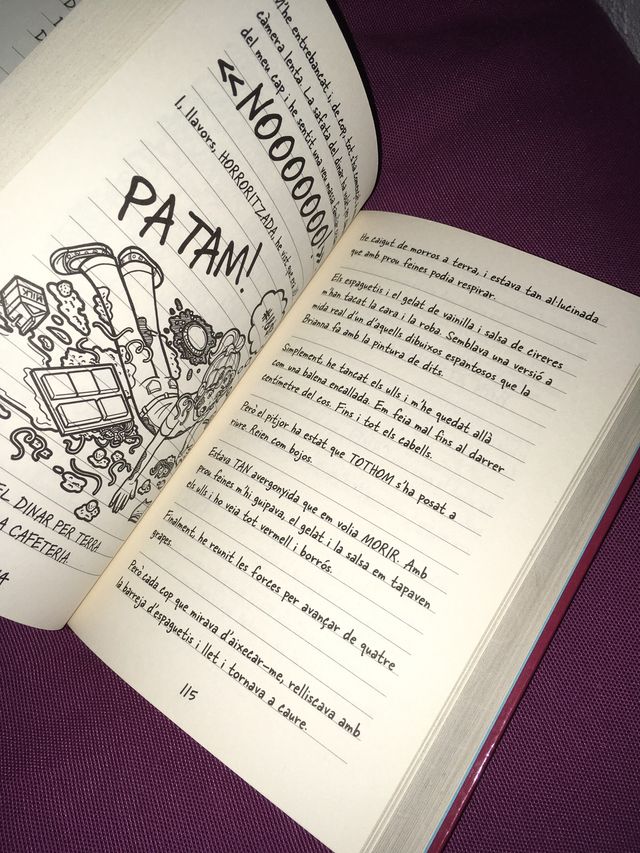 M'he entrebancat i, de cop, tot s'ha
càmera lenta. La safata del dinar ha
del meu cap i he sentit una veu massa
«NOOOOOOO!»
I, llavors, HORRORITZADA, he vist que era
PATAM!
EL DINAR PER TERRA
A CAFETERIA
He caigut de morros a terra, i estava tan al·lucinada
que amb prou feines podia respirar.
Els espaguetis i el gelat de vainilla i salsa de cireres
m'han tacat la cara i la roba. Semblava una versió a
mida real d'un d'aquells dibuixos espantosos que la
Brianna fa amb la pintura de dits.
Simplement, he tancat els ulls i m'he quedat allà
com una balena encallada. Em feia mal fins al darrer
centímetre del cos. Fins i tot els cabells.
Però el pitjor ha estat que TOTHOM s'ha posat a
riure. Reien com bojos.
Estava TAN avergonyida que em volia MORIR. Amb
prou feines m'hi guipava, el gelat i la salsa em tapaven
els ulls i ho veia tot vermell i borrós.
Finalment, he reunit les forces per avançar de quatre
grapes.
Però cada cop que mirava d'aixecar-me, relliscava amb
la barreja d'espaguetis i llet i tornava a caure.
115